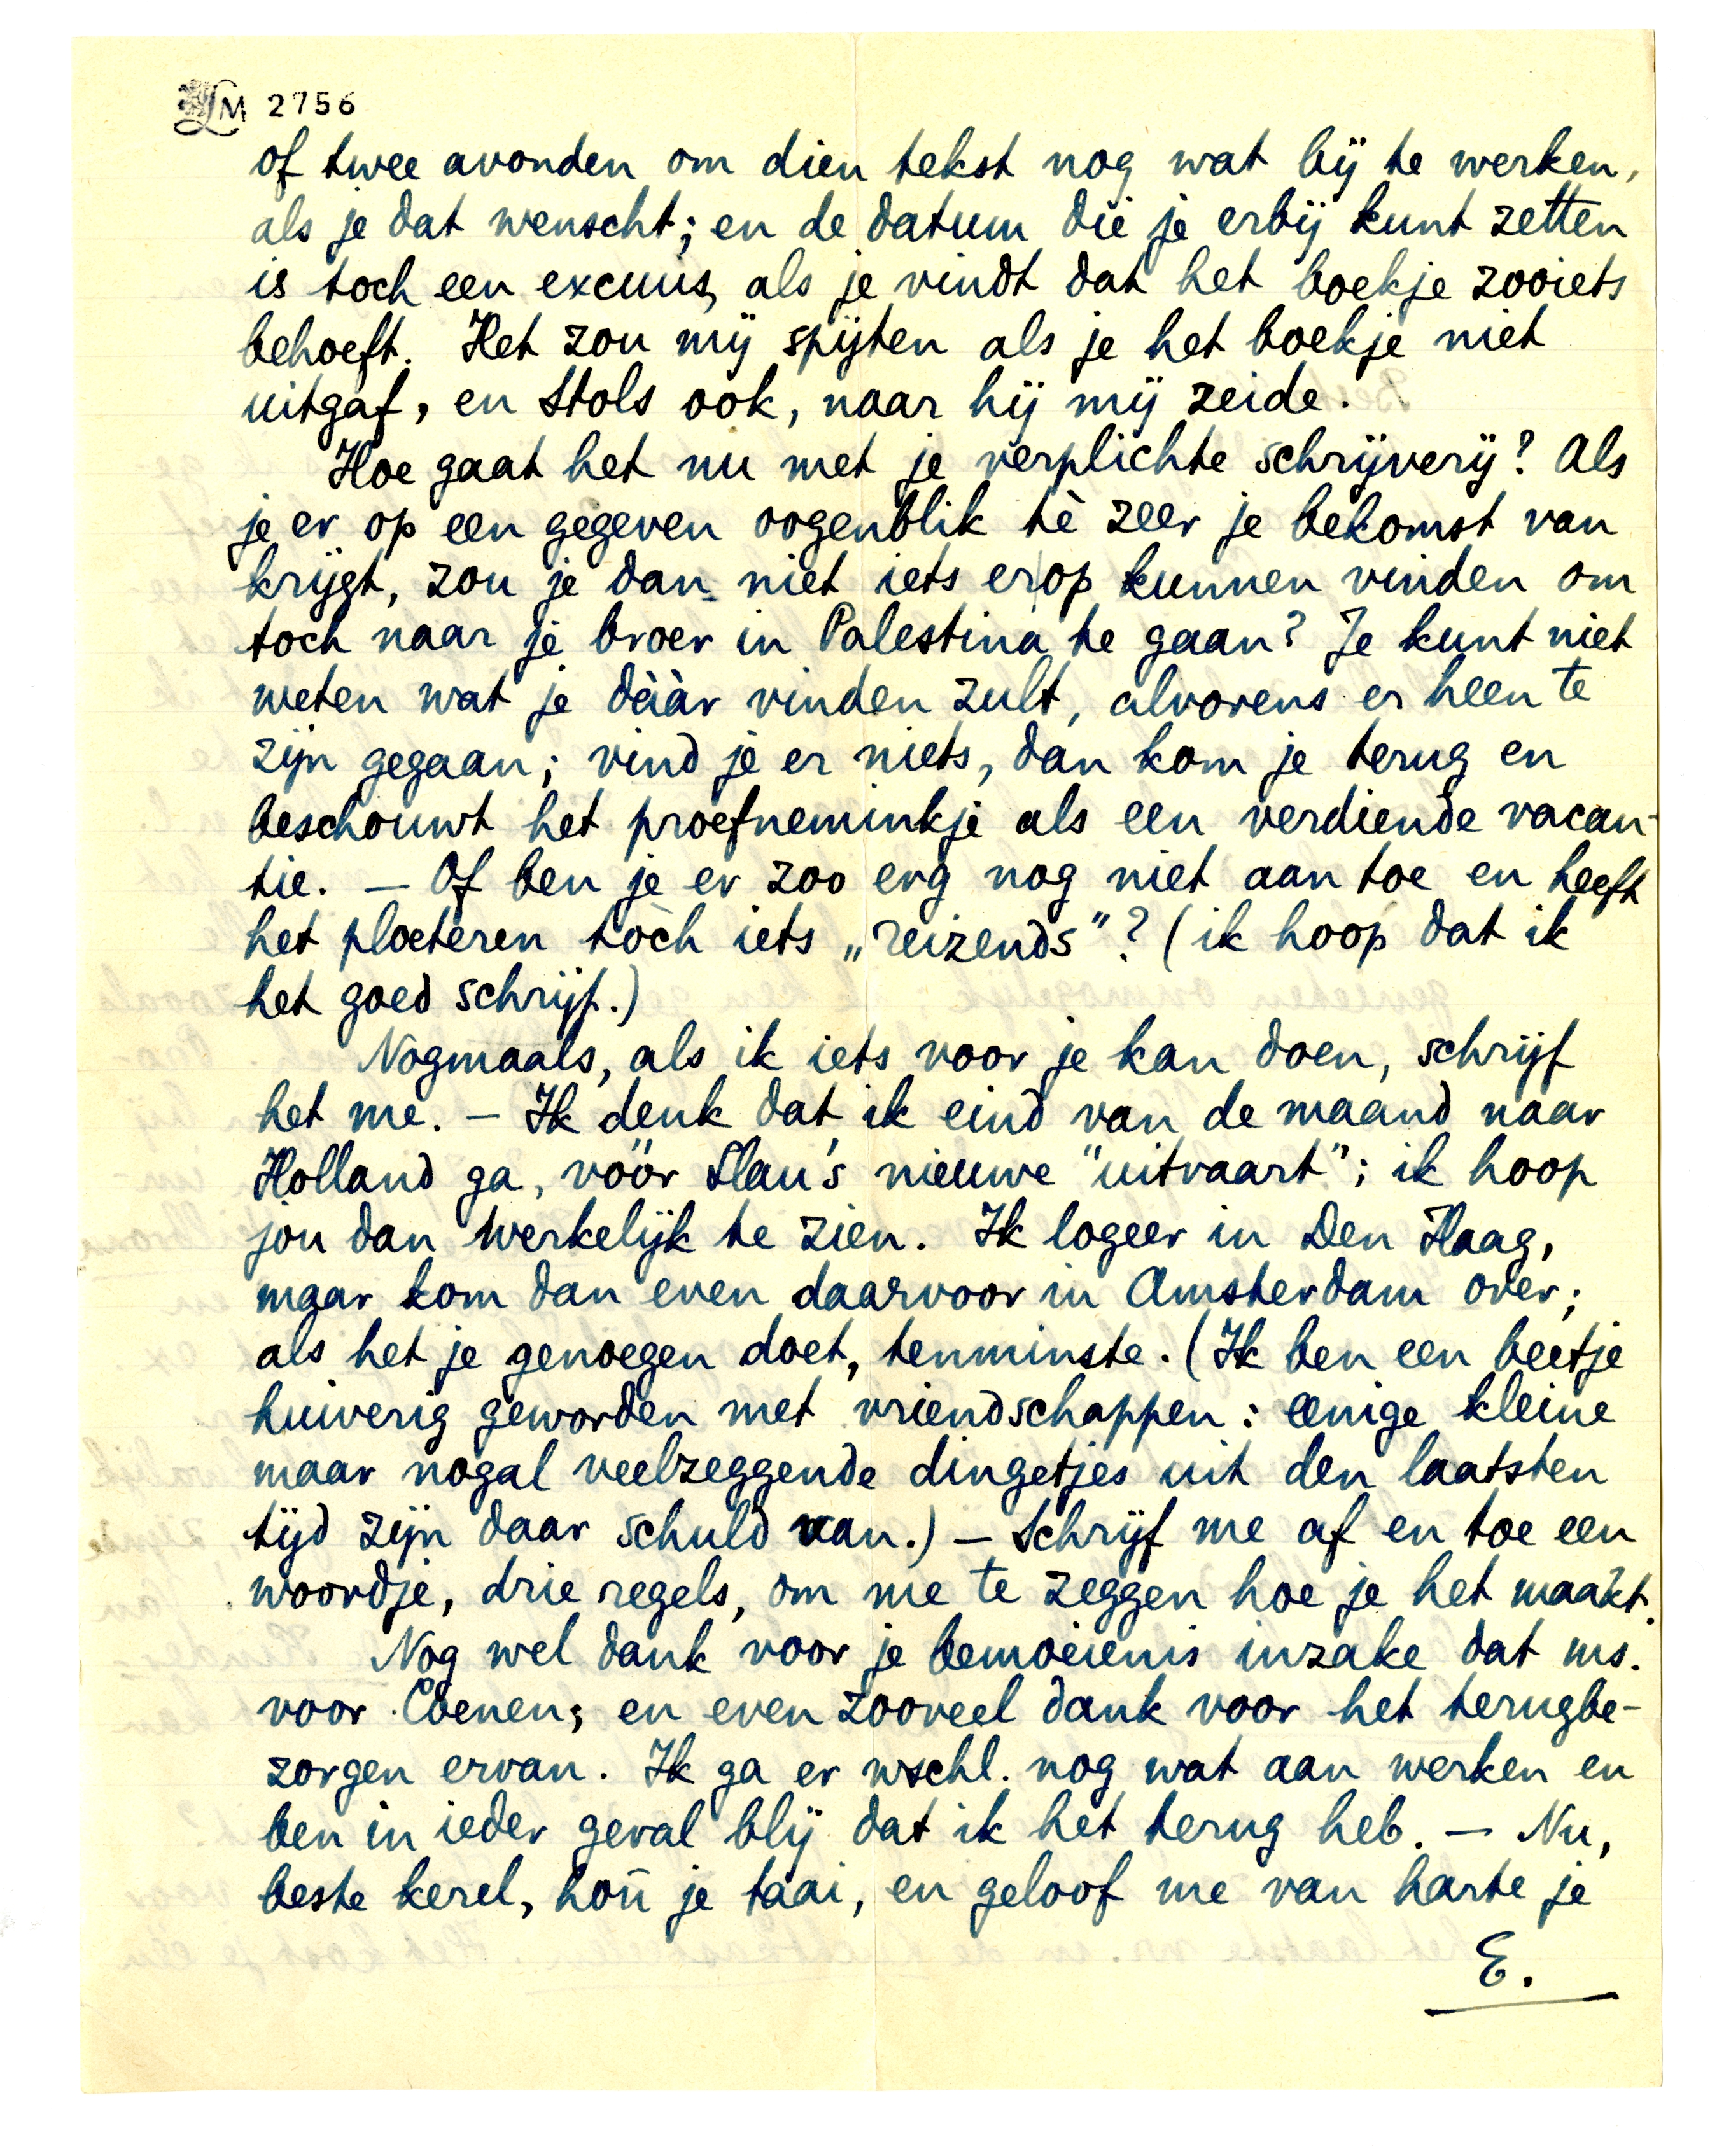 LM 2756
of twee avonden om dien tekst nog wat bij te werken,
als je dat wenscht; en de datum die je erbij kunt zetten
is toch een excuus, als je vindt dat het boekje zooiets
behoeft. Het zou mij spijten als je het boekje niet
uitgaf, en Stols ook, naar hij mij zeide.
Hoe gaat het nu met je verplichte schrijverij? Als
je er op een gegeven oogenblik tè zeer je bekomst van
krijgt, zou je dan niet iets erop kunnen vinden om
toch naar je broer in Palestina te gaan? Je kunt niet
weten wat je dààr vinden zult, alvorens er heen te
zijn gegaan; vind je er niets, dan kom je terug en
beschouwt het proefneminkje als een verdiende vacan-
tie. — Of ben je er zoo erg nog niet aan toe en heeft
het ploeteren tòch iets „reizends"? (ik hoop dat ik
het goed schrijf.)
Nogmaals, als ik iets voor je kan doen, schrijf
het me. — Ik denk dat ik eind van de maand naar
Holland ga, vóór Slau's nieuwe "uitvaart"; ik hoop
jou dan werkelijk te zien. Ik logeer in Den Haag,
maar kom dan even daarvoor in Amsterdam over;
als het je genoegen doet, tenminste. (Ik ben een beetje
huiverig geworden met vriendschappen: eenige kleine
maar nogal veelzeggende dingetjes uit den laatsten
tijd zijn daar schuld van.) — Schrijf me af en toe een
woordje, drie regels, om me te zeggen hoe je het maakt.
Nog wel dank voor je bemoeienis inzake dat ms.
voor Coenen; en even zooveel dank voor het terugbe-
zorgen ervan. Ik ga er wschl. nog wat aan werken en
ben in ieder geval blij dat ik het terug heb. — Nu,
beste kerel, hou je taai, en geloof me van harte je
E.